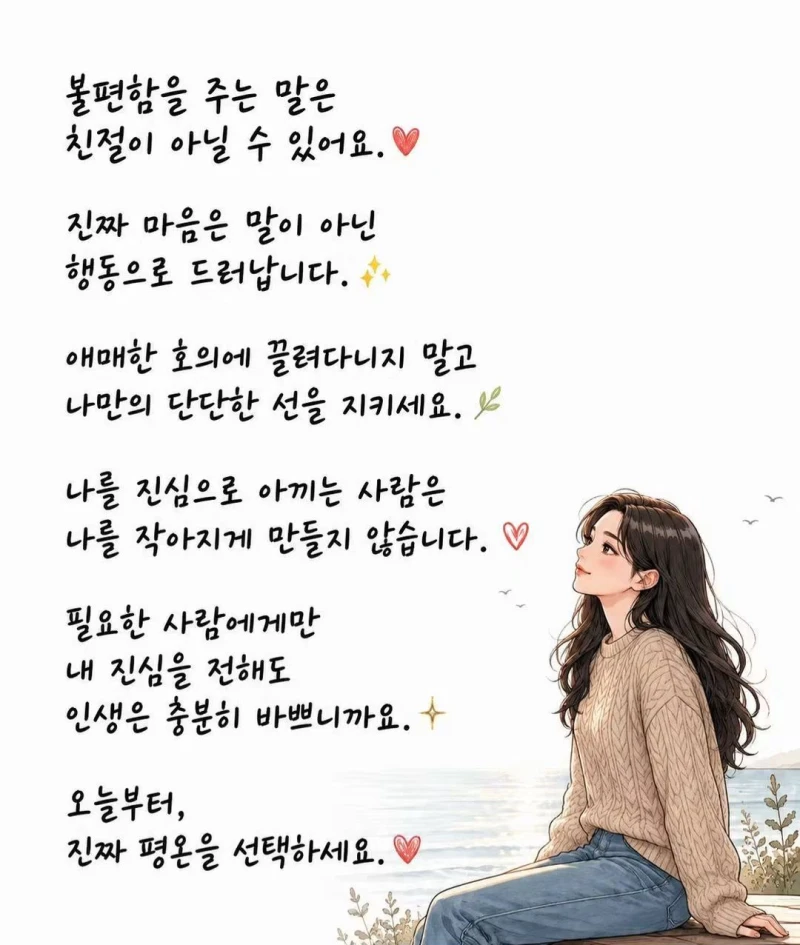 불편함을 주는 말은
친절이 아닐 수 있어요.
진짜 마음은 말이 아닌
행동으로 드러납니다.
애매한 호의에 끌려다니지 말고
나만의 단단한 선을 지키세요.
나를 진심으로 아끼는 사람은
나를 작아지게 만들지 않습니다.
필요한 사람에게만
내 진심을 전해도
인생은 충분히 바쁘니까요.
오늘부터,
진짜 평온을 선택하세요.